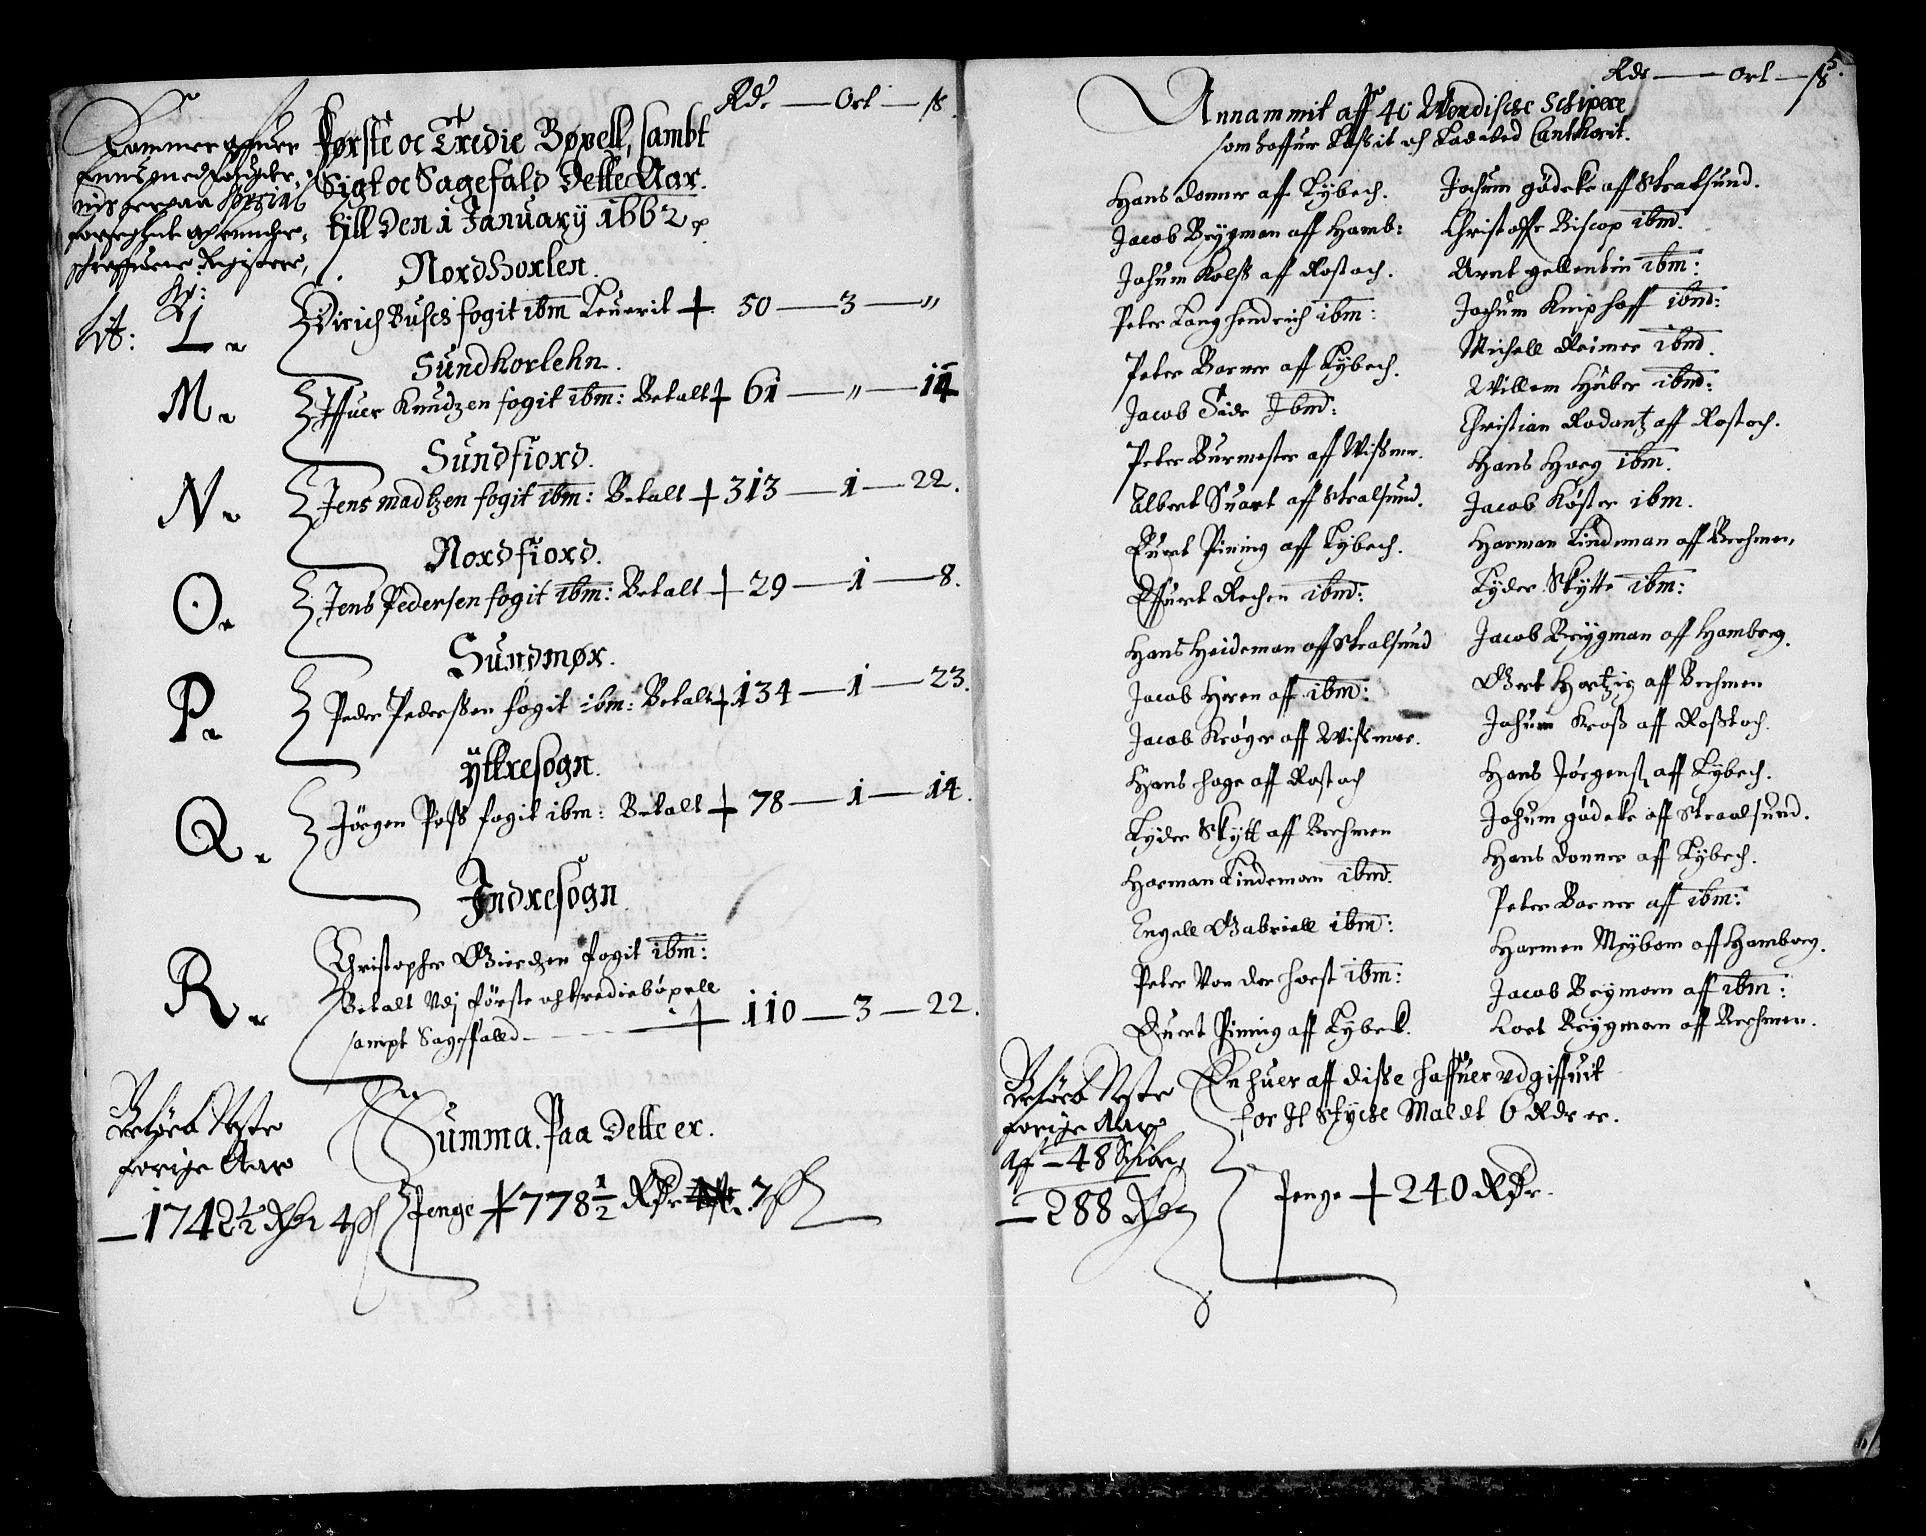 Rd. — Ort — ß
Første oc Tredie Bøxell, sambt
Sigt oc Sagefald Dette Aar.
till Den 1 January 1662
NordHorlen.
Lit: L. Dirich Busch fogit ibm Leuerit + 50 — 3 — "
Sundhorlehn.
M. Iffuer Knudzen fogit ibm: Betalt + 61 — " — 14
Sundfiord.
N. Jens Madtzen fogit ibm: Betalt + 313 — 1 — 22.
Nordfiord.
O. Jens Pedersen fogit ibm: Betalt + 29 — 1 — 8.
Sundmør.
P. Peder Pederssen fogit ibm: Betalt + 134 — 1 — 23.
Ytresogn.
Q. Jørgen Poss fogit ibm: Betalt + 78 — 1 — 14.
Indresogn
R. Christopher Giertzen fogit ibm:
Betalt Vdj Første oc trediebøxell
sampt Sagefald — + 110 — 3 — 22.
Beløb Neste
forrige Aar
— 1742½ Rdr 4 ß
Summa. Paa Dette er.
Penge + 778½ Rdr 7 ß
Rdr — Ort — ß
5.
Annammit aff 40 Wendische Schipere
som haffuer Lossit och Ladet ved Canthorit.
Hans Donner aff Lybech.
Jacob Brygman aff Hamb:
Johum Kolss aff Rostoch.
Peter Langhendrich ibm:
Peter Borner aff Lybech.
Jacob Side Ibmd:
Peter Burmester aff Wissmer.
Albert Suart aff Stralsund.
Euert Pining aff Lybech.
Effuert Rechen ibmd:
Hans Heideman aff Stralsund
Jacob Heren aff ibm:
Jacob Krøger aff Wissmer.
Hans Hage aff Rostoch
Lyder Skytt aff Brehmen
Harman Lindeman ibmd.
Engell Gabriell ibm:
Peter Von der Hoest ibm:
Euert Pining aff Lybeck.
Jochum gødeke aff Stralsund.
Christoffer Biscop ibmd.
Arent gellentin ibm:
Jochum Kniphoff ibmd:
Michell Reimer ibmd.
Willem Huber ibmd:
Christian Radantz aff Rostoch.
Hans Hoeg ibm.
Jacob Køster ibm.
Harman Lindeman aff Brehmen,
Lyder Skytte ibm:
Jacob Brygman aff Hamborg.
Gert Hortzig aff Brehmen
Johum Kross aff Rosstoch.
Hans Jørgenss aff Lybech.
Johum gødeke aff Straalsund.
Hans Donner aff Lybech.
Peter Borner aff ibm:
Harmen Meybom aff Hamborg.
Jacob Brygmann aff ibm:
Lort Brygman aff Brehmen.
Beløb Neste
forrige Aar
Aff — 48 Schipper,
— 288 Rdr
En huer aff disse haffuer udgiffuit
for It Stycke Maldt 6 Rdr er.
Penge + 240 Rdr.